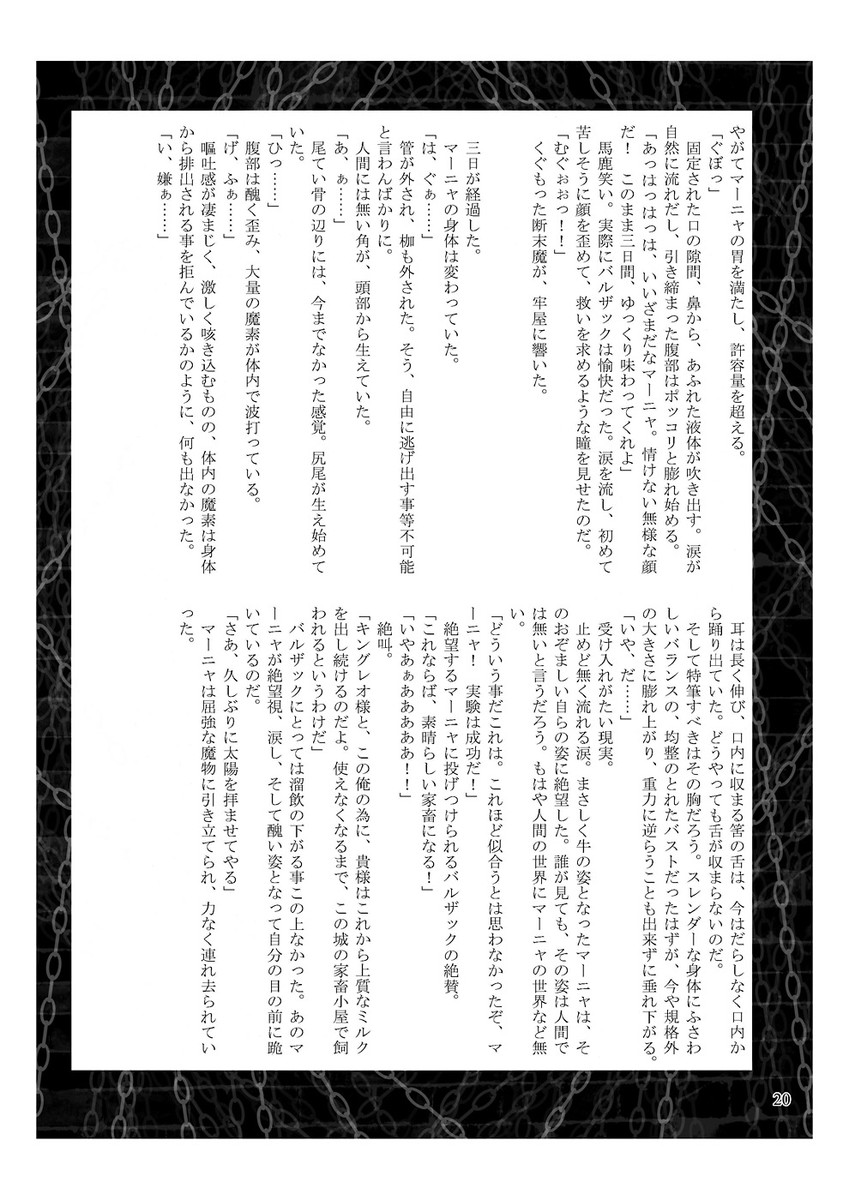 やがてマーニャの胃を満たし、許容量を超える。
「ぐぼっ」
　固定された口の隙間、鼻から、あふれた液体が吹き出す。涙が
自然に流れだし、引き締まった腹部はポッコリと膨れ始める。
「あっはっはっは、いいざまだなマーニャ。情けない無様な顔
だ！　このまま三日間、ゆっくり味わってくれよ」
　馬鹿笑い。実際にバルザックは愉快だった。涙を流し、初めて
苦しそうに顔を歪めて、救いを求めるような瞳を見せたのだ。
「むぐぉぉっ！！」
　くぐもった断末魔が、牢屋に響いた。
三日が経過した。
　マーニャの身体は変わっていた。
「は、ぐぁ……」
　管が外され、枷も外された。そう、自由に逃げ出す事等不可能
と言わんばかりに。
　人間には無い角が、頭部から生えていた。
「あ、ぁ……」
　尾てい骨の辺りには、今までなかった感覚。尻尾が生え始めて
いた。
「ひっ……」
　腹部は醜く歪み、大量の魔素が体内で波打っている。
「げ、ふぁ……」
　嘔吐感が凄まじく、激しく咳き込むものの、体内の魔素は身体
から排出される事を拒んでいるかのように、何も出なかった。
「い、嫌ぁ……」
　耳は長く伸び、口内に収まる筈の舌は、今はだらしなく口内か
ら踊り出ていた。どうやっても舌が収まらないのだ。
　そして特筆すべきはその胸だろう。スレンダーな身体にふさわ
しいバランスの、均整のとれたバストだったはずが、今や規格外
の大きさに膨れ上がり、重力に逆らうことも出来ずに垂れ下がる。
「いや、だ……」
　受け入れがたい現実。
　止めど無く流れる涙。まさしく牛の姿となったマーニャは、そ
のおぞましい自らの姿に絶望した。誰が見ても、その姿は人間で
は無いと言うだろう。もはや人間の世界にマーニャの世界など無
い。
「どういう事だこれは。これほど似合うとは思わなかったぞ、マ
ーニャ！　実験は成功だ！」
　絶望するマーニャに投げつけられるバルザックの絶賛。
「これならば、素晴らしい家畜になる！」
「いやあぁああああ！！」
　絶叫。
「キングレオ様と、この俺の為に、貴様はこれから上質なミルク
を出し続けるのだよ。使えなくなるまで、この城の家畜小屋で飼
われるというわけだ」
　バルザックにとっては溜飲の下がる事この上なかった。あのマ
ーニャが絶望視、涙し、そして醜い姿となって自分の目の前に跪
いているのだ。
「さあ、久しぶりに太陽を拝ませてやる」
　マーニャは屈強な魔物に引き立てられ、力なく連れ去られてい
った。
20